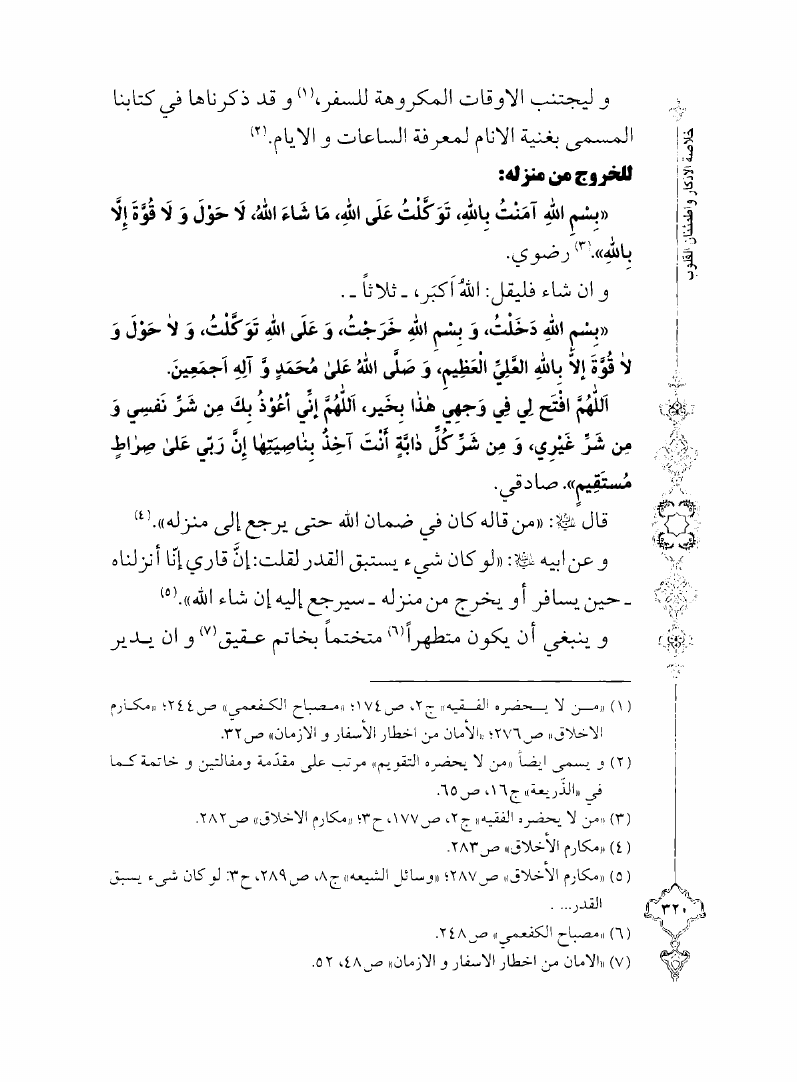 خلاصة الاذكار و اطمئنان القلوب
و ليجتنب الاوقات المكروهة للسفر،(١) و قد ذكرناها في كتابنا
المسمى بغنية الانام لمعرفة الساعات و الايام.(٢)
للخروج من منزله:
«بِسْمِ اللهِ آمَنْتُ بِاللهِ، تَوَكَّلْتُ عَلَى اللهِ، مَا شَاءَ اللهُ، لَا حَوْلَ وَ لَا قُوَّةَ إِلَّا
بِاللهِ».(٣) رضوي.
و ان شاء فليقل: اللهُ اَكبَر، ـ ثلاثاً ـ .
«بِسْمِ اللهِ دَخَلْتُ، وَ بِسْمِ اللهِ خَرَجْتُ، وَ عَلَى اللهِ تَوَكَّلْتُ، وَ لاٰ حَوْلَ وَ
لاٰ قُوَّةَ إِلاّٰ بِاللهِ العَلِيِّ الْعَظِيمِ، وَ صَلَّى اللهُ عَلىٰ مُحَمَدٍ وَّ آلِهِ اَجمَعِينَ.
اَللّٰهُمَّ افْتَح لِي فِي وَجهِي هٰذا بِخَير، اَللّٰهُمَّ إنِّي أعُوْذُ بِكَ مِن شَرِّ نَفسِي وَ
مِن شَرِّ غَيْرِي، وَ مِن شَرِّ كُلِّ دٰابَّةٍ أَنْتَ آخِذُ بِنٰاصِيَتِهٰا إنَّ رَبّي عَلىٰ صِرٰاطٍ
مُستَقِيمٍ». صادقي.
قال ﷺ: «من قاله كان في ضمان الله حتى يرجع إلى منزله».(٤)
و عن ابيه ﷺ: «لو كان شيء يستبق القدر لقلت: إنَّ قاري إنّا أنزلناه
ـ حين يسافر أو يخرج من منزله ـ سيرجع إليه إن شاء الله».(٥)
و ينبغي أن يكون متطهراً(٦) متختماً بخاتم عـقيق(٧) و ان يـدير
(١) «مـن لا يـحضره الفـقيه» ج٢، ص١٧٤؛ «مـصباح الكـفعمي» ص٢٤٤؛ «مكـارم
الاخلاق» ص٢٧٦؛ «الأمان من اخطار الأسفار و الازمان» ص٣٢.
(٢) و يسمى ايضاً «من لا يحضره التقويم» مرتب على مقدّمة ومقالتين و خاتمة كـما
في «الذّريعة» ج١٦، ص٦٥.
(٣) «من لا يحضره الفقيه» ج٢، ص١٧٧، ح٣؛ «مكارم الاخلاق» ص٢٨٢.
(٤) «مكارم الأخلاق» ص٢٨٣.
(٥) «مكارم الأخلاق» ص٢٨٧؛ «وسائل الشيعه» ج٨، ص٢٨٩، ح٣: لو كان شيء يسبق
القدر... .
(٦) «مصباح الكفعمي» ص٢٤٨.
(٧) «الامان من اخطار الاسفار و الازمان» ص٤٨، ٥٢.
٣٢٠